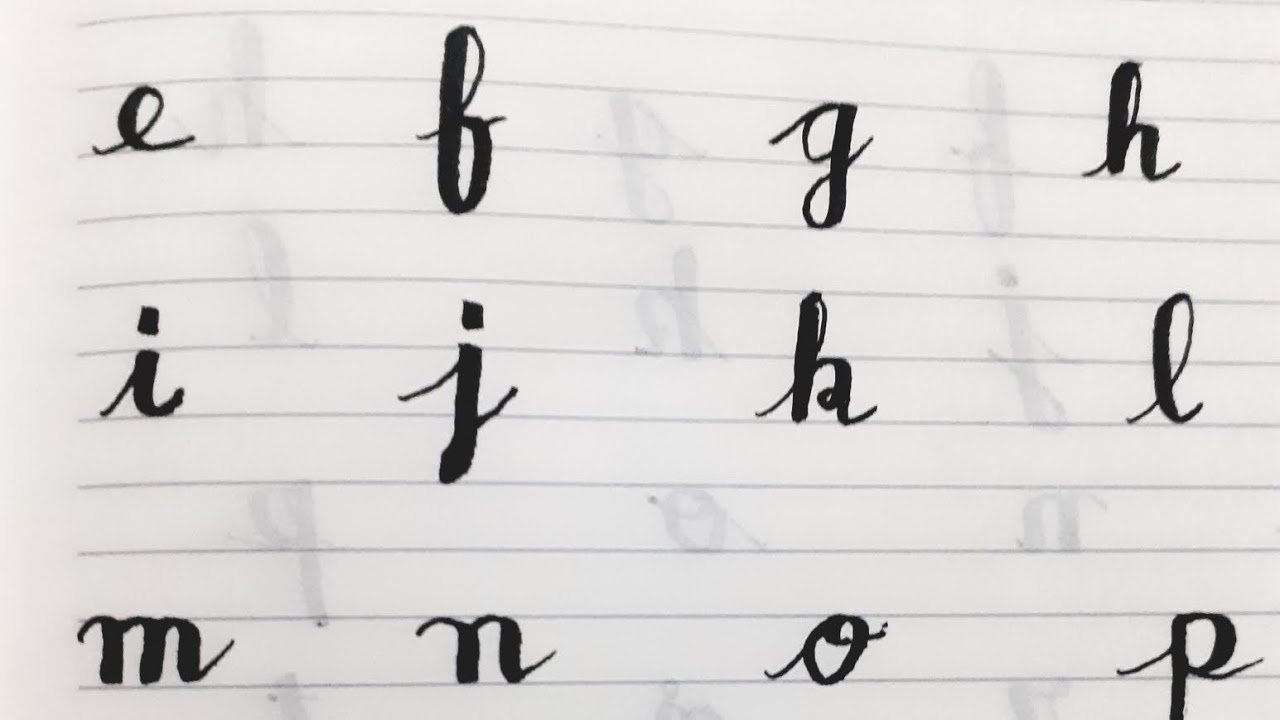 e f g h
i j k l
m n o p